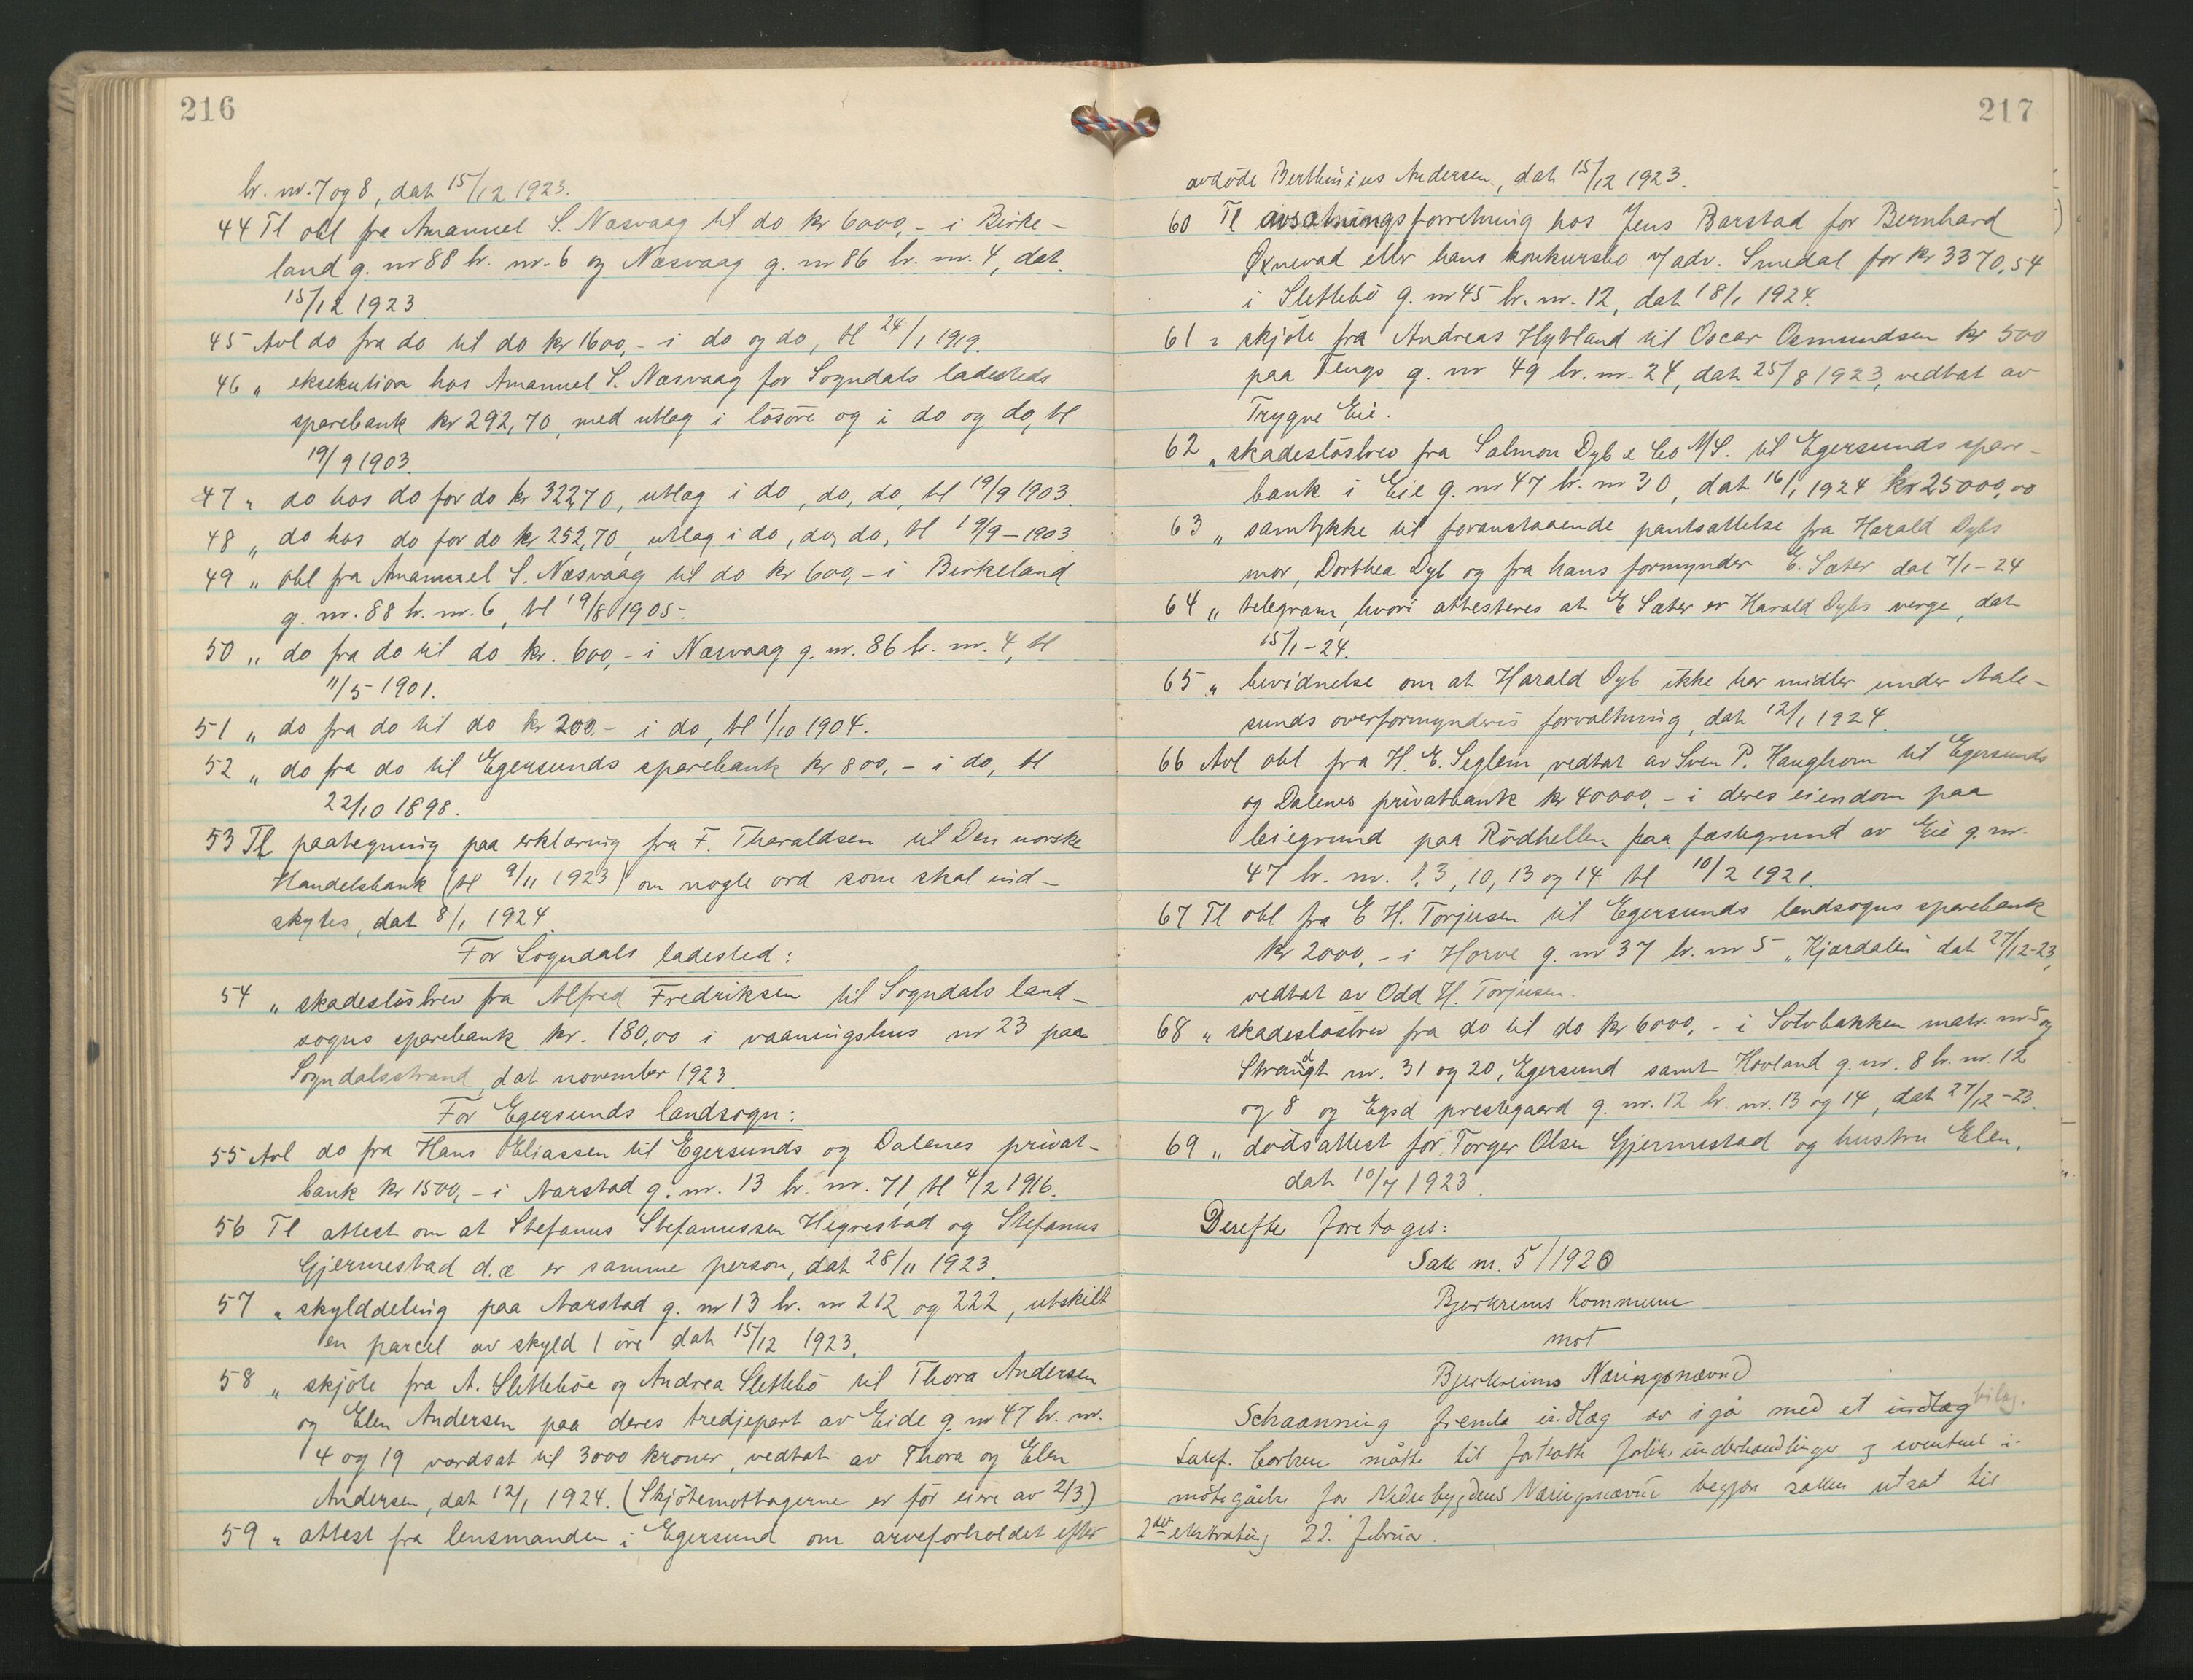 216
br. nr. 7 og 8, dat 15/12 1923.
44 Tl obl fra Amanuel S. Næsvaag til do kr 6000,- i Birke-
land g. nr 88 br. nr. 6 og Næsvaag g. nr 86 br. nr. 4, dat.
15/12 1923.
45 Avl do fra do til do kr 1600,- i do og do, tl 24/1 1919.
46 " eksekution hos Amanuel S. Næsvaag for Sogndals ladesteds
sparebank kr 292,70, med utlæg i løsøre og i do og do, tl
19/9 1903.
47 " do hos do for do kr 322,70, utlæg i do, do, do, tl 19/9 1903.
48 " do hos do for do kr 252,70, utlæg i do, do, do, tl 19/9 - 1903
49 " obl fra Amanuel S. Næsvaag til do kr 600,- i Birkeland
g. nr. 88 br. nr. 6, tl 19/8 1905.
50 " do fra do til do kr. 600,- i Næsvaag g. nr. 86 br. nr. 4, tl
11/5 1901.
51 " do fra do til do kr 200,- i do, tl 1/10 1904.
52 " do fra do til Egersunds sparebank kr 800,- i do, tl
22/10 1898.
53 Tl paategning paa erklæring fra F. Tharaldsen til Den norske
Handelsbank (tl 9/11 1923) om nogle ord som skal ind-
skytes, dat 8/1 1924.
For Sogndals ladested:
54 " skadesløsbrev fra Alfred Fredriksen til Sogndals land-
sogns sparebank kr. 180,00 i vaaningshus nr 23 paa
Sogndalsstrand, dat november 1923.
For Egersunds landsogn:
55 Avl do fra Hans Eliassen til Egersunds og Dalenes privat-
bank kr 1500,- i Aarstad g. nr. 13 br. nr. 71, tl 4/2 1916.
56 Tl attest om at Stefanus Stefanussen Hegrestad og Stefanus
Gjermestad d.æ er samme person, dat 28/11 1923.
57 " skylddeling paa Aarstad g. nr 13 br. nr 212 og 222, utskilt
en parcel av skyld 1 øre dat 15/12 1923.
58 " skjøte fra A. Slettebøe og Andrea Slettebø til Thora Andersen
og Elen Andersen paa deres tredjepart av Eide g. nr 47 br. nr.
4 og 19 værdsat til 3000 kroner, vedtat av Thora og Elen
Andersen, dat 12/1 1924. (Skjøtemottagerne er før eiere av 2/3.)
59 " attest fra lensmanden i Egersund om arveforholdet efter
217
avdøde Berthinius Andersen, dat 15/12 1923.
60 Tl avsætningsforretning hos Jens Barstad for Bernhard
Øxnevad eller hans konkursbo v/ adv. Smedal for kr 3370,54
i Slettebø g. nr 45 br. nr. 12, dat 18/1 1924.
61 " skjøte fra Andreas Hybland til Oscar Osmundsen kr 500
paa Tengs g. nr 49 br. nr. 24, dat 25/8 1923, vedtat av
Trygve Eie.
62 " skadesløsbrev fra Salmon Dyb & Co A/S. til Egersunds spare-
bank i Eie g. nr 47 br. nr 30, dat 16/1 1924 kr 25000,00
63 " samtykke til foranstaaende pantsættelse fra Harald Dybs
mor, Dorthea Dyb og fra hans formynder E. Sæter dat 7/1 - 24
64 " telegram, hvori attesteres at E Sæter er Harald Dybs verge, dat
15/1 - 24.
65 " bevidnelse om at Harald Dyb ikke har midler under Aale-
sunds overformynderis forvaltning, dat 12/1 1924.
66 Avl obl fra H. E. Seglem, vedtat av Sven P. Haughom til Egersunds
og Dalenes privatbank kr 40000,- i deres eiendom paa
leiegrund paa Rødhellen paa fæstegrund av Eie g. nr.
47 br. nr. 1, 3, 10, 13 og 14 tl 10/2 1921.
67 Tl obl fra E H. Torjusen til Egersunds landsogns sparebank
kr 2000,- i Horve g. nr 37 br. nr 5 "Kjærdalen" dat 27/12-23,
vedtat av Odd H. Torjusen.
68 " skadesløsbrev fra do til do kr 6000,- i Solvbakken matr. nr 5 og
Strandgt nr. 31 og 20, Egersund samt Hovland g. nr. 8 br. nr. 12
og 8 og Egsd prestegaard g. nr. 12 br. nr. 13 og 14, dat 27/12 - 23.
69 " dødsattest for Torger Olsen Gjermestad og hustru Elen,
dat 10/7 1923.
Derefter foretoges:
Sak nr. 5/1920
Bjerkreims Kommune
mot
Bjerkreims Næringsnævnd
Schaanning fremla indlæg av igår med et indlæg bilag.
Saksf. møtte til fortsatte forliksunderhandlinger og eventuel i-
møtegåelse fra Næringsnævnd begjær saken utsat til
2det ekstrating 22. februar.